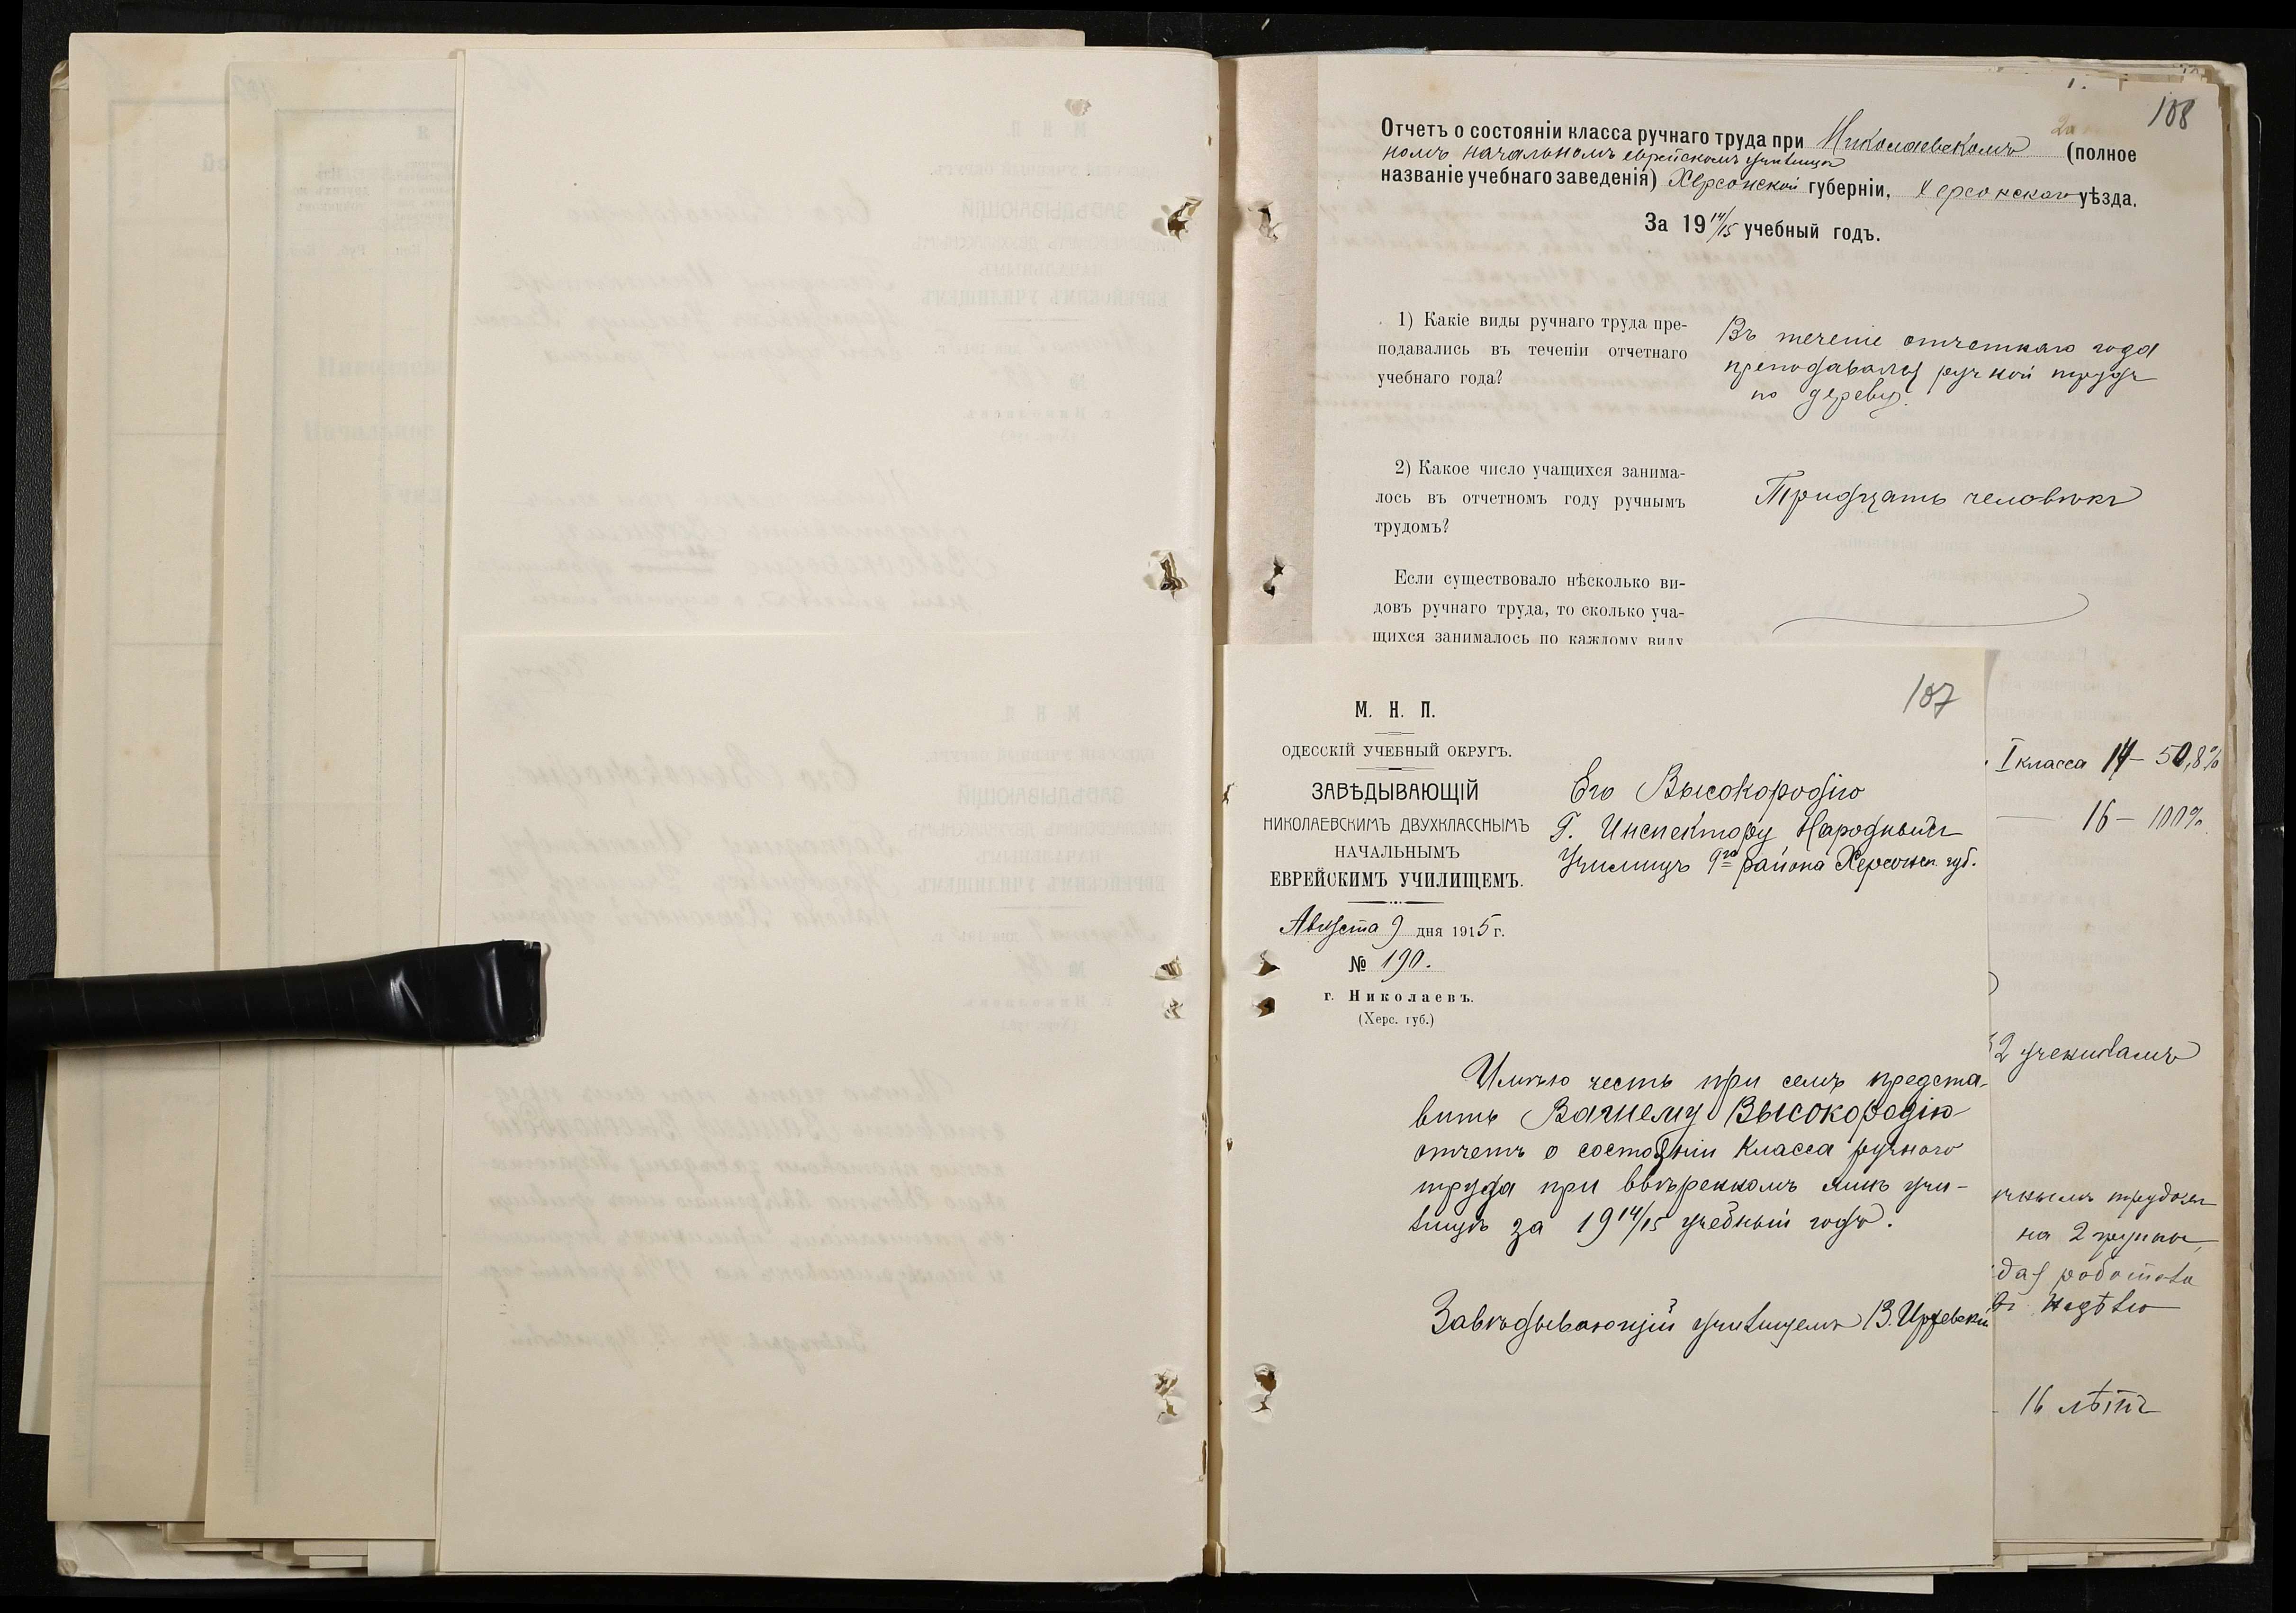 108
Отчетъ о состоянiи класса ручнаго труда при Николаевскомъ (полное
номъ начальномъ еврейскомъ училищѣ
названiе учебнаго заведенiя) Херсонской губернiи, Херсонскаго уѣзда.
За 19 14/15 учебный годъ.
1) Какiе виды ручнаго труда пре-
подавались въ теченiи отчетнаго
учебнаго года?
Въ теченiе отчетнаго года
преподавался ручной трудъ
по дереву.
2) Какое число учащихся занима-
лось въ отчетномъ году ручнымъ
трудомъ?
Тридцать человѣкъ
Если существовало нѣсколько ви-
довъ ручнаго труда, то сколько уча-
щихся занималось по каждому виду
I класса 14 – 50,8%
16 – 100%
2 ученикамъ
на 2 группы,
работала
недѣлю
16 лѣтъ
107
М. Н. П.
ОДЕССКIЙ УЧЕБНЫЙ ОКРУГЪ.
ЗАВѢДЫВАЮЩIЙ
НИКОЛАЕВСКИМЪ ДВУХКЛАССНЫМЪ
НАЧАЛЬНЫМЪ
ЕВРЕЙСКИМЪ УЧИЛИЩЕМЪ.
Августа 9 дня 1915 г.
№ 190.
г. Николаевъ.
(Херс. губ.)
Его Высокородiю
Г. Инспектору Народныхъ
Училищъ 9го района Херсонск. губ.
Имѣю честь при семъ предста-
вить Вашему Высокородiю
отчетъ о состоянiи класса ручного
труда при ввѣренномъ мнѣ учи-
лищѣ за 19 14/15 учебный годъ.
Завѣдывающiй училищемъ В.